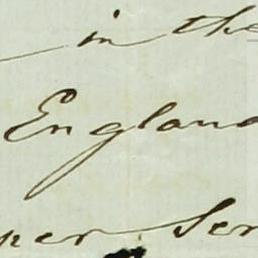 in the
England
per. Ser